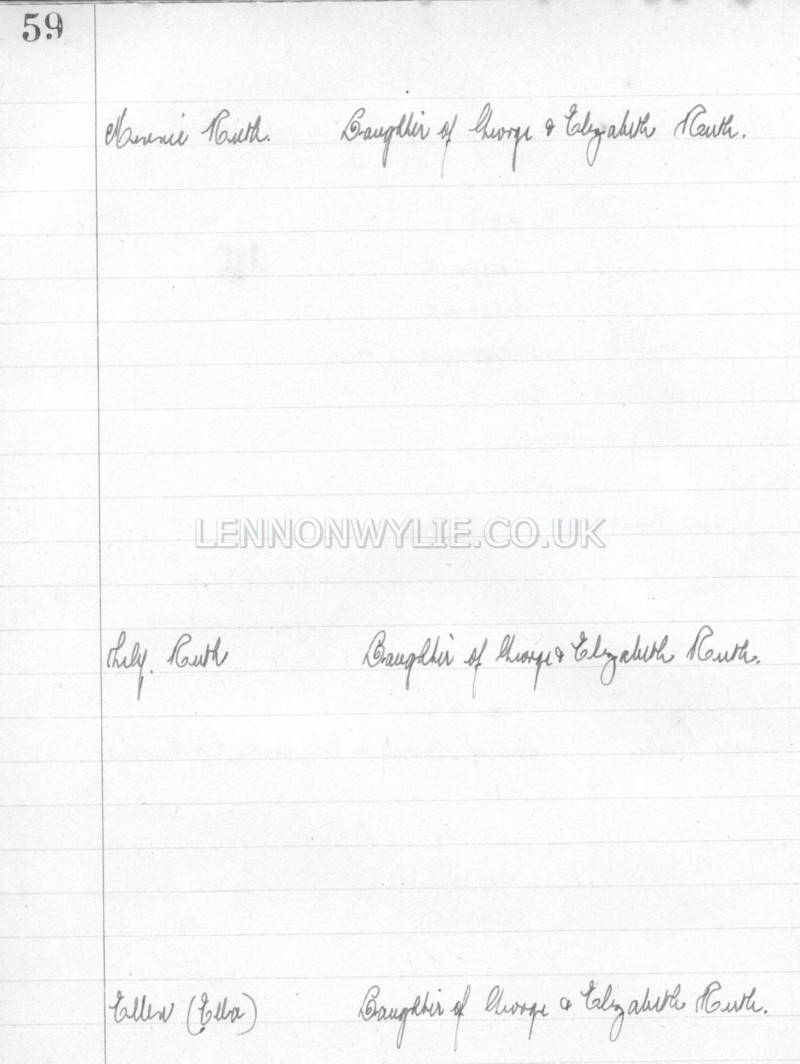 59
Minnie Ruth. Daughter of George & Elizabeth Ruth.
LENNONWYLIE.CO.UK
Lily. Ruth Daughter of George & Elizabeth Ruth.
Ellen (Ella) Daughter of George & Elizabeth Ruth.